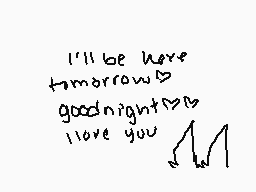 I'll be here
tomorrow♡
goodnight♡♡
I love you